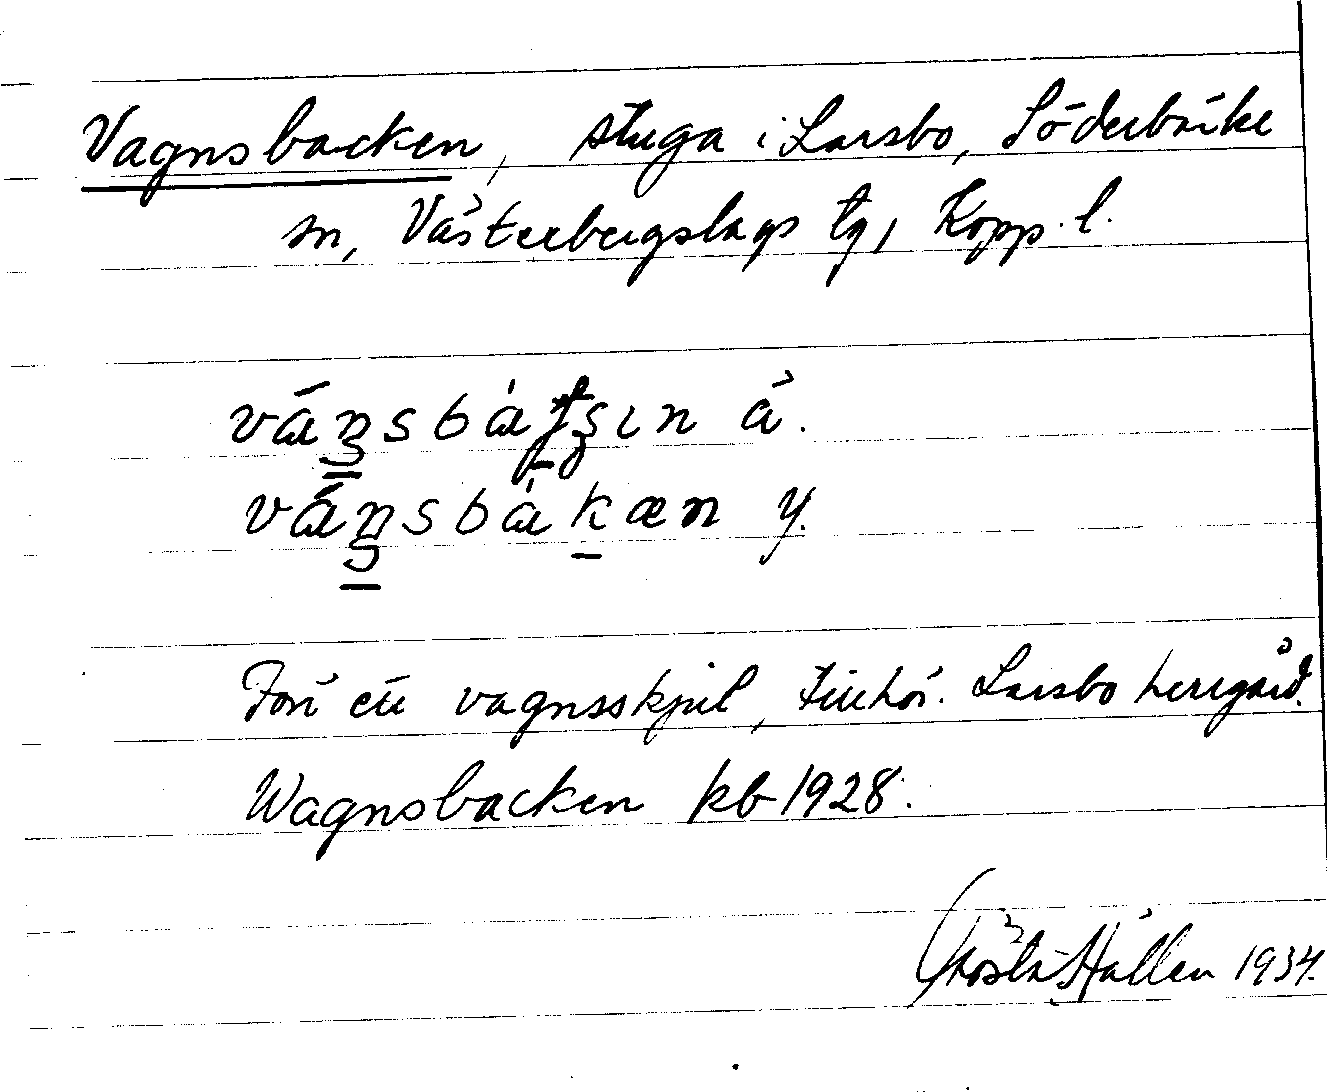 Vagnsbacken, stuga i Larsbo, Söderbärke
sn, Västerbergslags tg, Kopp. l.
vá̄ŋsbàtʂın ä.
vá̄ŋsbàkæn y.
Förr ett vagnsskjul, tillhör. Larsbo herrgård.
Wagnsbacken kb 1928.
Gösta Hallen 1934.